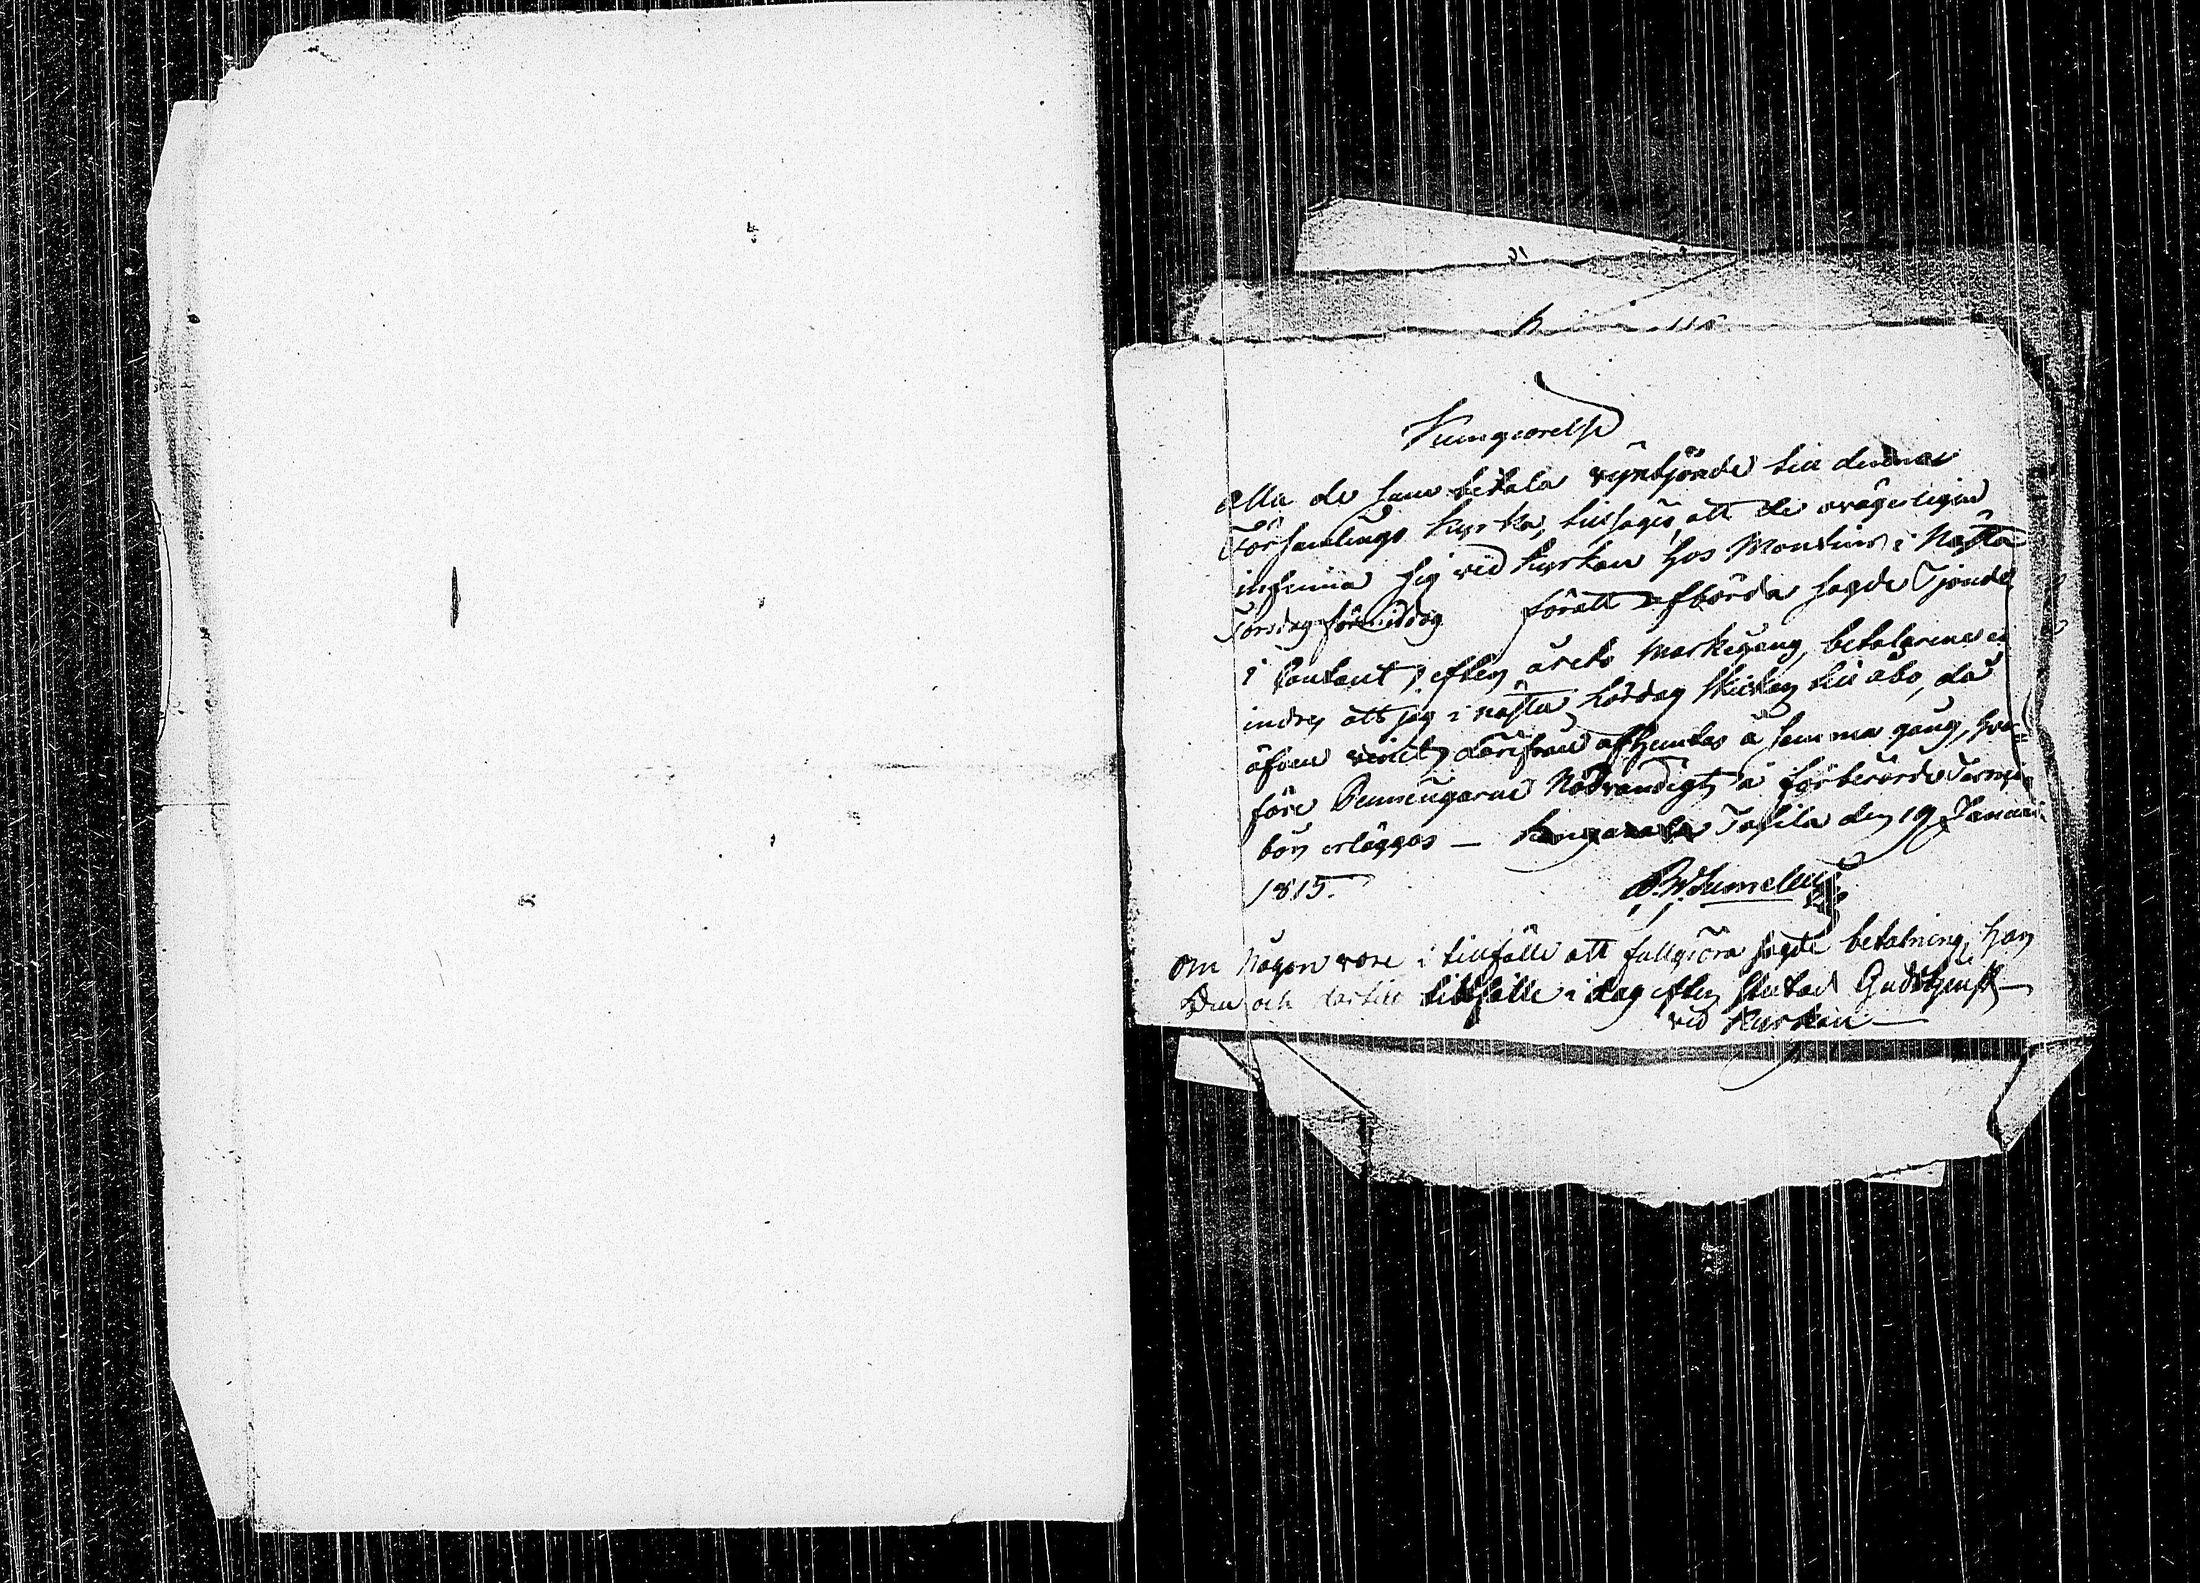 Kungiorelse
Alla de som betala vijntjönde till denna
Församlings kyrka, tillsäges, att de ovägerligen
infinna sig vid kyrkan hos Monsins i Nästa
Torsdag förmiddag föratt afbörda sagde Tjonde
i Contant, efter årets Markegång, betalarenes
indrey att jag i nästa Lördag skickar till Åbo, då
äfven vinet därifrån afhemtas å samma gång, hvar=
före Penningarne Nödvändigt å förberörde Termin
bör erläggas — Kangasala Tafila den 19 Januari
1815.
om Någon vore i tillfälle att fullgiöra sagde betalning, har
den och dertill tillfälle i dag efter slutad Gudstjenst —
vid Kyrkan —